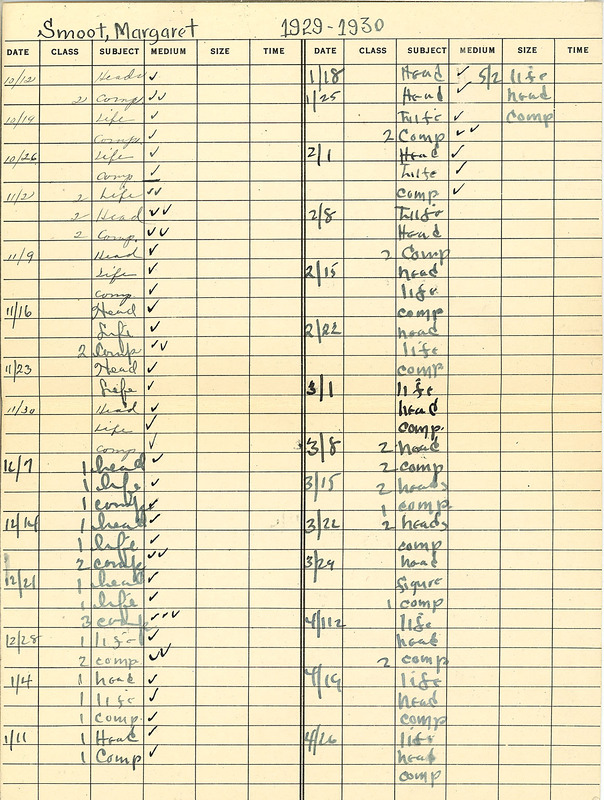 Smoot, Margaret 1929-1930
DATE CLASS SUBJECT MEDIUM SIZE TIME DATE CLASS SUBJECT MEDIUM SIZE TIME
10/12 Heads ✓
2 Comp ✓✓
10/19 Life ✓
Comp ✓
10/26 Life ✓
Comp ✓
11/2 2 Life ✓✓
2 Head ✓✓
2 Comp. ✓✓
11/9 Head ✓
Life ✓
comp ✓
11/16 Head ✓
Life ✓
2 Comp ✓✓
11/23 Head ✓
Life ✓
11/30 Head ✓
Life ✓
comp ✓
12/7 1 head ✓
1 life ✓
1 comp ✓
12/14 1 head ✓
1 life ✓
2 comp ✓✓
12/21 1 head ✓
1 life ✓
3 comp ✓✓✓
12/28 1 life ✓
2 comp ✓✓
1/4 1 head ✓
1 life ✓
1 comp. ✓
1/11 1 Head ✓
1 Comp ✓
1/18 Head ✓ 5/2 life
1/25 Head ✓ head
life ✓ comp
2 Comp ✓✓
2/1 Head ✓
life ✓
comp ✓
2/8 life
Head
2 Comp
2/15 head
life
comp
2/22 head
life
comp
3/1 life
head
comp.
3/8 2 head
2 comp
3/15 2 heads
1 comp.
3/22 2 heads
comp
3/29 head
figure
1 comp
life
head
2 comp
4/19 life
head
comp
4/26 life
head
comp